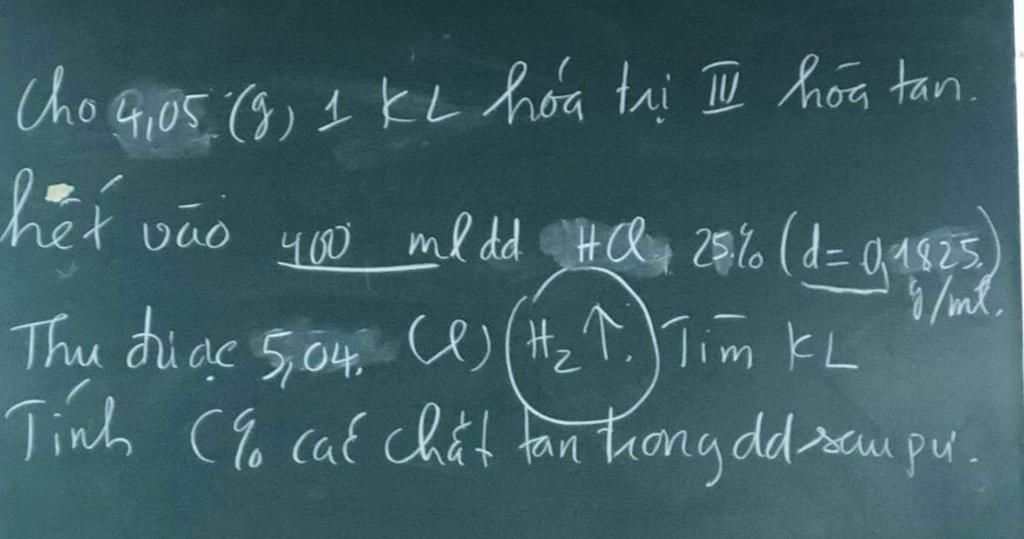 Cho 4,05 (g) 1 KL hóa trị III hòa tan.
hết vào 400 ml dd HCl 25% (d = 0,1825 g/ml.)
Thu được 5,04. (l) (H2↑.) Tìm KL
Tính C% các chất tan trong dd sau pư.